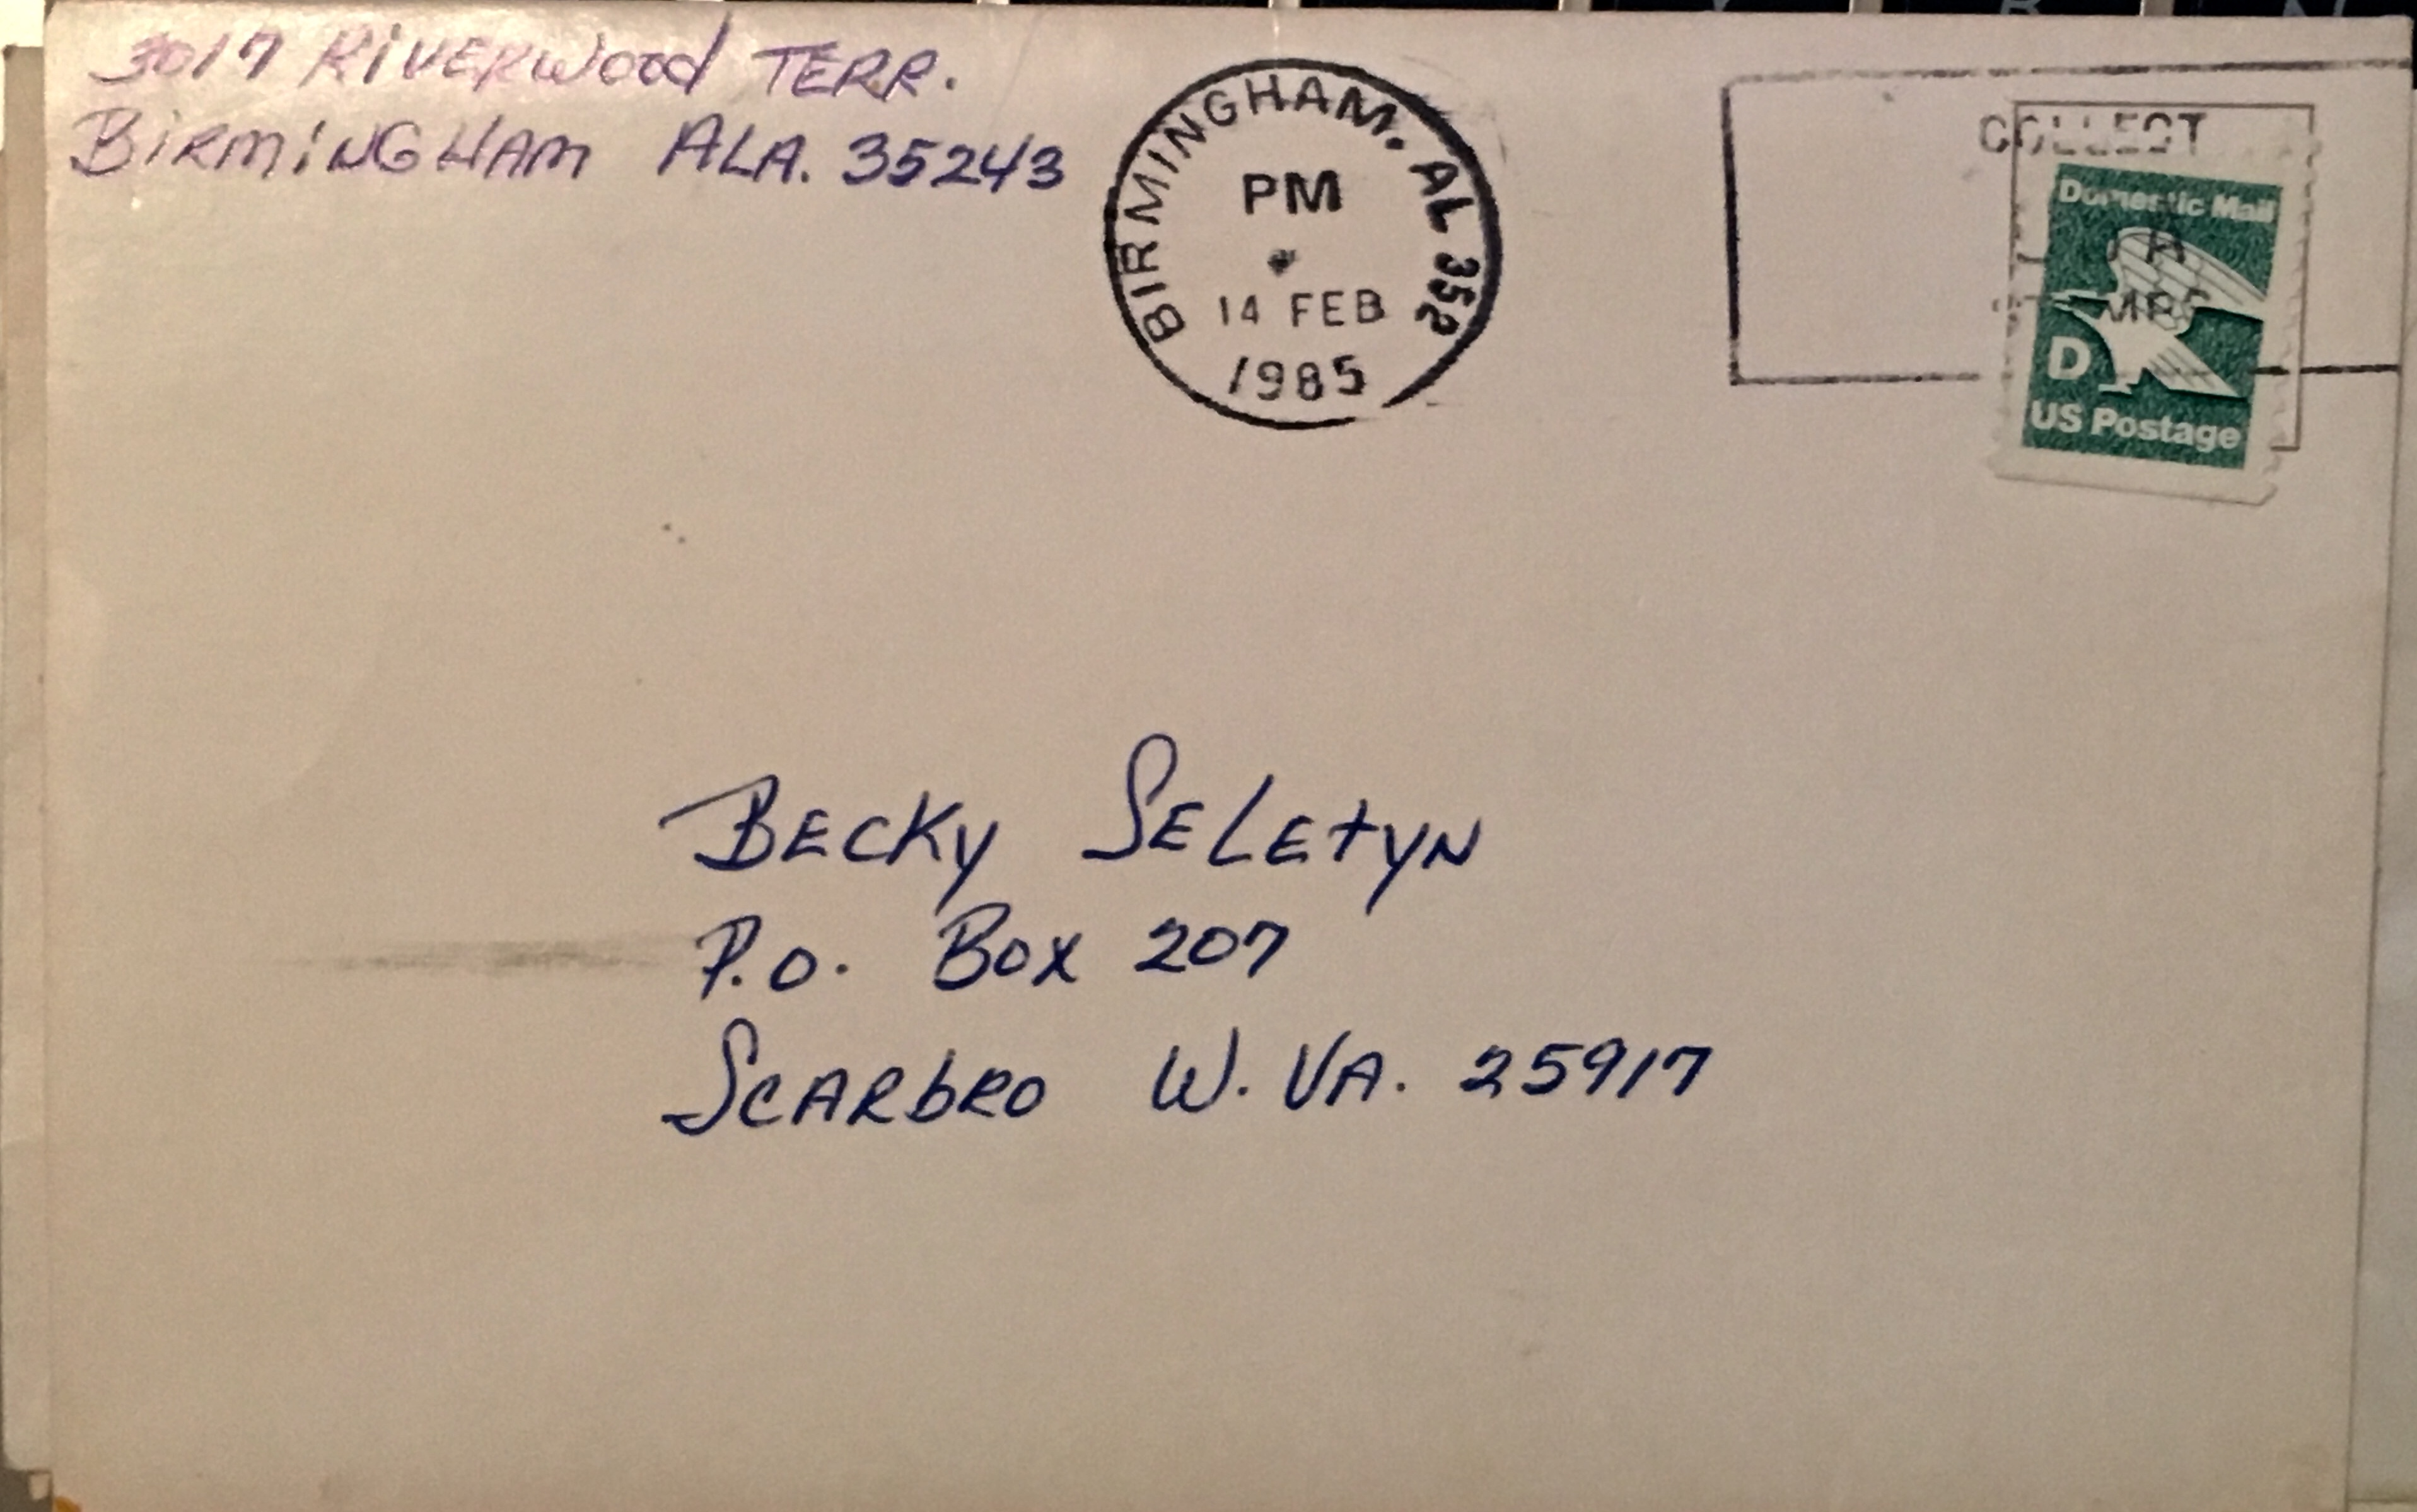 3017 RiVERWood TERR.
BiRMiNGHAM ALA. 35243
BIRMINGHAM, AL 352
PM
14 FEB
1985
COLLECT
Domestic Mail
D
US Postage
BECKY SELEtyN
P.O. Box 207
SCARbRO W. VA. 25917